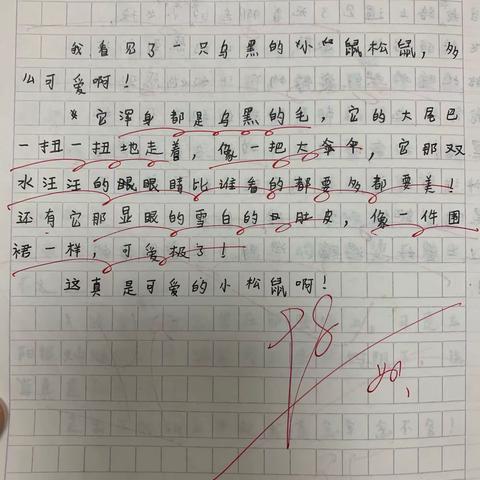 我看见了一只乌黑的小鼠松鼠，多
么可爱啊！
它浑身都是乌黑的毛，它的大尾巴
一扭一扭地走着，像一把大伞伞，它那双
水汪汪的眼眼睛比谁看的都要多都要美！
还有它那显眼的雪白的肚皮，像一件围
裙一样，可爱极了！
这真是可爱的小松鼠啊！
98